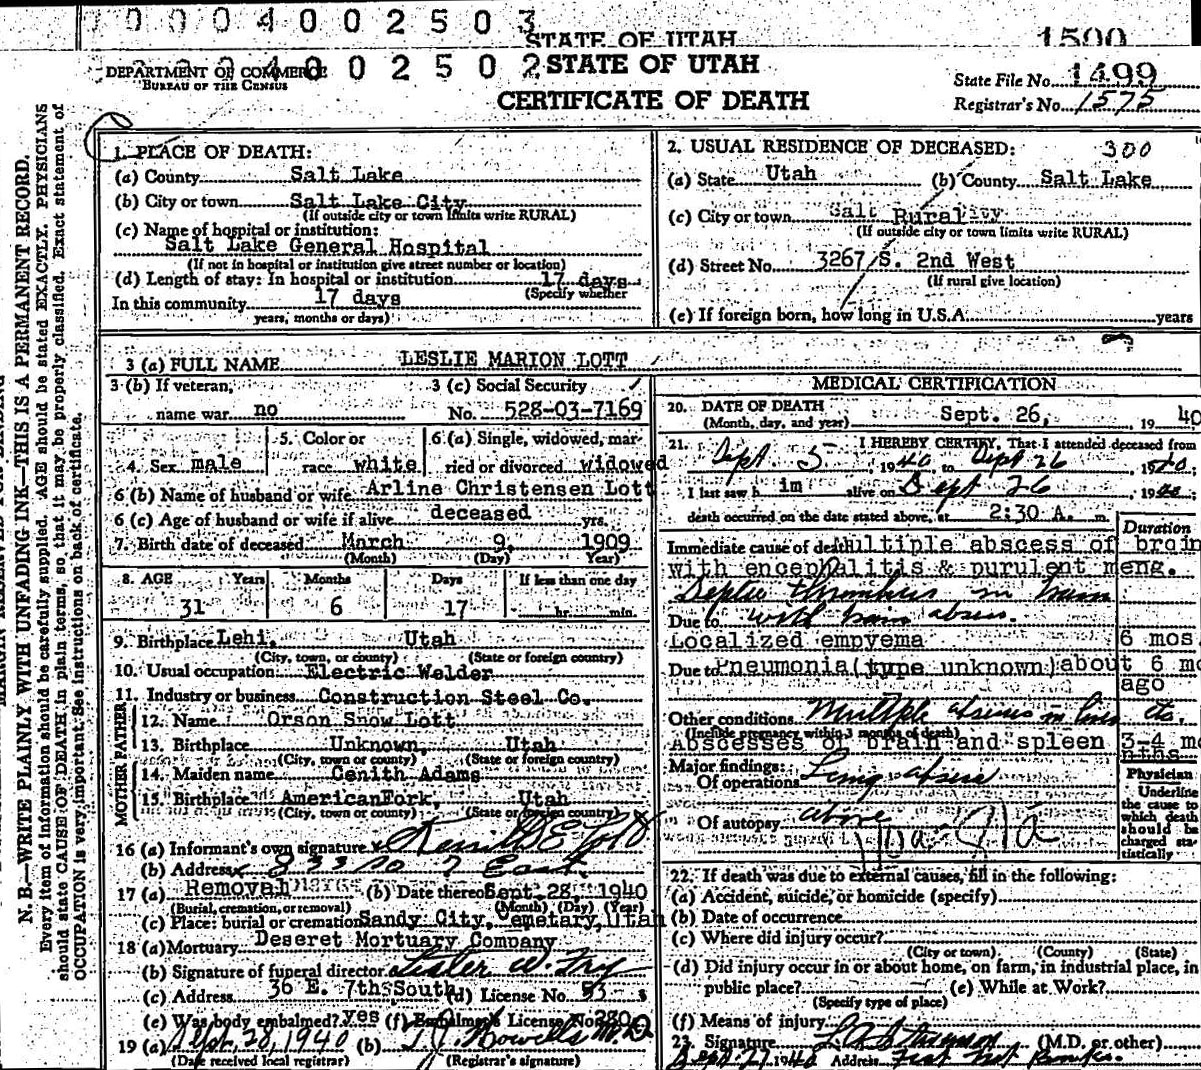 0 0 0 4 0 0 2 5 0 3
STATE OF UTAH
1500
DEPARTMENT OF COMMERCE
BUREAU OF THE CENSUS
0 0 2 5 0 2
STATE OF UTAH
CERTIFICATE OF DEATH
State File No. 1499
Registrar's No. 1575
N. B.—WRITE PLAINLY WITH UNFADING INK—THIS IS A PERMANENT RECORD.
Every item of information should be carefully supplied. AGE should be stated EXACTLY. PHYSICIANS
should state CAUSE OF DEATH in plain terms, so that it may be properly classified. Exact statement of
OCCUPATION is very important. See instructions on back of certificate.
1. PLACE OF DEATH:
(a) County Salt Lake
(b) City or town Salt Lake City
(If outside city or town limits write RURAL)
(c) Name of hospital or institution:
Salt Lake General Hospital
(If not in hospital or institution give street number or location)
(d) Length of stay: In hospital or institution 17 days
(Specify whether
In this community 17 days
years, months or days)
2. USUAL RESIDENCE OF DECEASED: 300
(a) State Utah (b) County Salt Lake
(c) City or town Rural
(If outside city or town limits write RURAL)
(d) Street No. 3267 S. 2nd West
(If rural give location)
(e) If foreign born, how long in U.S.A. years
3 (a) FULL NAME LESLIE MARION LOTT
3 (b) If veteran, 3 (c) Social Security
name war no No. 528-03-7169
4. Sex male 5. Color or race white 6 (a) Single, widowed, married or divorced widowed
6 (b) Name of husband or wife Arline Christensen Lott
6 (c) Age of husband or wife if alive deceased yrs.
7. Birth date of deceased March 9, 1909
(Month) (Day) (Year)
8. AGE Years Months Days If less than one day
31 6 17 hr. min.
9. Birthplace Lehi, Utah
(City, town, or county) (State or foreign country)
10. Usual occupation Electric Welder
11. Industry or business Construction Steel Co.
FATHER
12. Name Orson Snow Lott
13. Birthplace Unknown, Utah
(City, town or county) (State or foreign country)
MOTHER
14. Maiden name Cenith Adams
15. Birthplace AmericanFork, Utah
(City, town, or county) (State or foreign country)
16 (a) Informant's own signature Lott
(b) Address 833 No 7 East
17 (a) Removal (b) Date thereof Sept. 28, 1940
(Burial, cremation, or removal) (Month) (Day) (Year)
(c) Place: burial or cremation Sandy City, Cemetary, Utah
18 (a) Mortuary Deseret Mortuary Company
(b) Signature of funeral director Lester W. Fry
(c) Address 36 E. 7th South (d) License No. 53
(e) Was body embalmed? yes (f) Embalmer's License No. 280
19 (a) Sept. 28, 1940 (b) Howells M.D.
(Date received local registrar) (Registrar's signature)
MEDICAL CERTIFICATION
20. DATE OF DEATH Sept. 26, 1940
(Month, day, and year)
21. I HEREBY CERTIFY, That I attended deceased from
Sept 5 1940 to Sept 26 1940;
I last saw him alive on Sept 26 1940;
death occurred on the date stated above, at 2:30 A. m.
Duration
Immediate cause of death Multiple abscess of brain
with encephalitis & purulent meng.
Septic thrombus in brain
Due to with brain abscess.
Localized empyema 6 mos.
Due to Pneumonia(type unknown)about 6 mo
ago
Other conditions Multiple abscess in do.
(Include pregnancy within 3 months of death)
Abscesses of brain and spleen 3-4 mo
nths
Major findings:
Of operations Lung abscess
Of autopsy above
Physician
Underline
the cause to
which death
should be
charged sta-
tistically
22. If death was due to external causes, fill in the following:
(a) Accident, suicide, or homicide (specify)
(b) Date of occurrence
(c) Where did injury occur?
(City or town) (County) (State)
(d) Did injury occur in or about home, on farm, in industrial place, in
public place? (e) While at Work?
(Specify type of place)
(f) Means of injury
23. Signature (M.D. or other)
Sept. 27 1940 Address